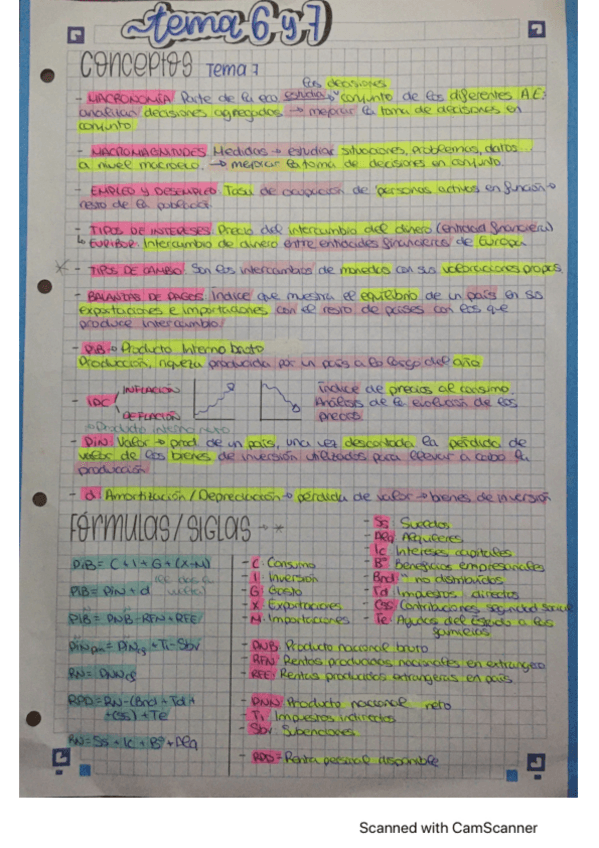 ~tema 6 y 7
conceptos Tema 7
las decisiones
- MACRONOMÍA Parte de la eco. estudia conjunto de los diferentes A.E:
analizan decisiones agregadas → mejorar la toma de decisiones en
conjunto.
- MACROMAGNITUDES Medidas → estudiar situaciones, problemas, datos...
a nivel macroeco. → mejorar la toma de decisiones en conjunto.
- EMPLEO y DESEMPLEO. Tasa de ocupación de personas activas en función →
resto de la población.
- TIPOS DE INTERESES: Precio del intercambio del dinero (entidad financiera)
↳ EURIBOR. Intercambio de dinero entre entidades financieras de Europa.
* - TIPOS DE CAMBIO. Son los intercambios de monedas con sus valoraciones propias.
- BALANZAS DE PAGOS. Índice que muestra el equilibrio de un país en sus
exportaciones e importaciones con el resto de países con los que
produce intercambio.
- PIB → Producto Interno bruto
Producción, riqueza producida por un país a lo largo del año
- IPC INFLACIÓN
DEFLACIÓN
Índice de precios al consumo.
Análisis de la evolución de los
precios
→ Producto interno neto
- PIN. Valor → prod. de un país, una vez descontada la pérdida de
valor de los bienes de inversión utilizados para llevar a cabo la
producción
- d. Amortización / Depreciación → pérdida de valor → bienes de inversión
FÓRMULAS/SIGLAS
PIB = C + I + G + (X-M)
PIB = PIN + d
PIB = PNB - RFN + RFE
PINpm = PINcf + Ti - Sbv
RN = PNNcf
RPD = RN - (Bnd + Td +
+ CSS) + Te
RN = Ss + Ic + Bº + Alq
- C. Consumo
- I. Inversión
- G. Gasto
- X. Exportaciones
- M. Importaciones
- PNB. Producto nacional bruto
- RFN. Rentas producidas nacionales en extranjero
- RFE. Rentas producidas extranjeras en país
- PNN. Producto nacional neto
- Ti. Impuestos indirectos
- Sbv Subenciones
- RPD = Renta personal disponible
- Ss Sueldos
- Alq Alquileres
- Ic. Intereses capitales
- Bº Beneficios empresariales
- Bnd → no distribuidos
- Td. Impuestos directos
- Css. Contribuciones seguridad social
- Te. Ayudas del Estado a las
familias
Scanned with CamScanner